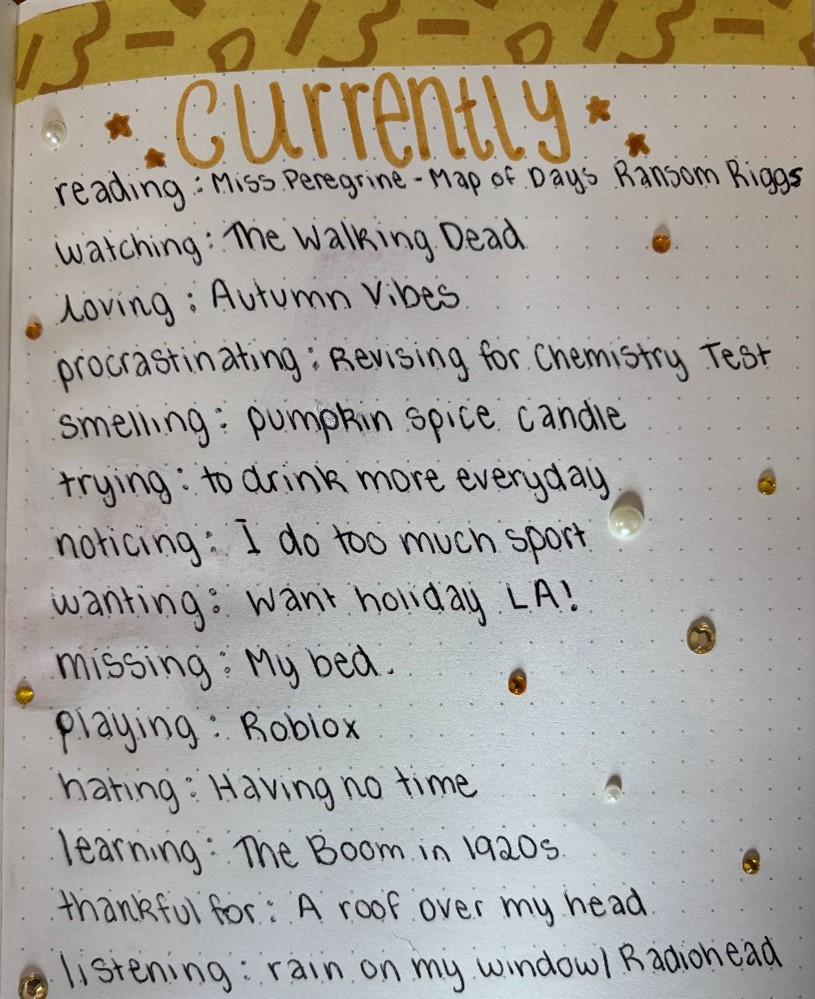 Currently
reading : Miss Peregrine - Map of Days Ransom Riggs
watching : The Walking Dead
loving : Autumn Vibes
procrastinating : Revising for Chemistry Test
smelling : pumpkin spice candle
trying : to drink more everyday
noticing : I do too much sport
wanting : Want holiday LA!
missing : My bed.
playing : Roblox
hating : Having no time
learning : The Boom in 1920s
thankful for : A roof over my head
listening : rain on my window/ Radiohead